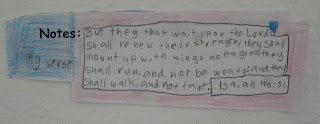 Notes:
But they that wait upon the Lord
shall renew their strength; they shall
mount up with wings as eagles; they
shall run, and not be weary; and they
shall walk, and not faint. Isaiah 40:31
my verse